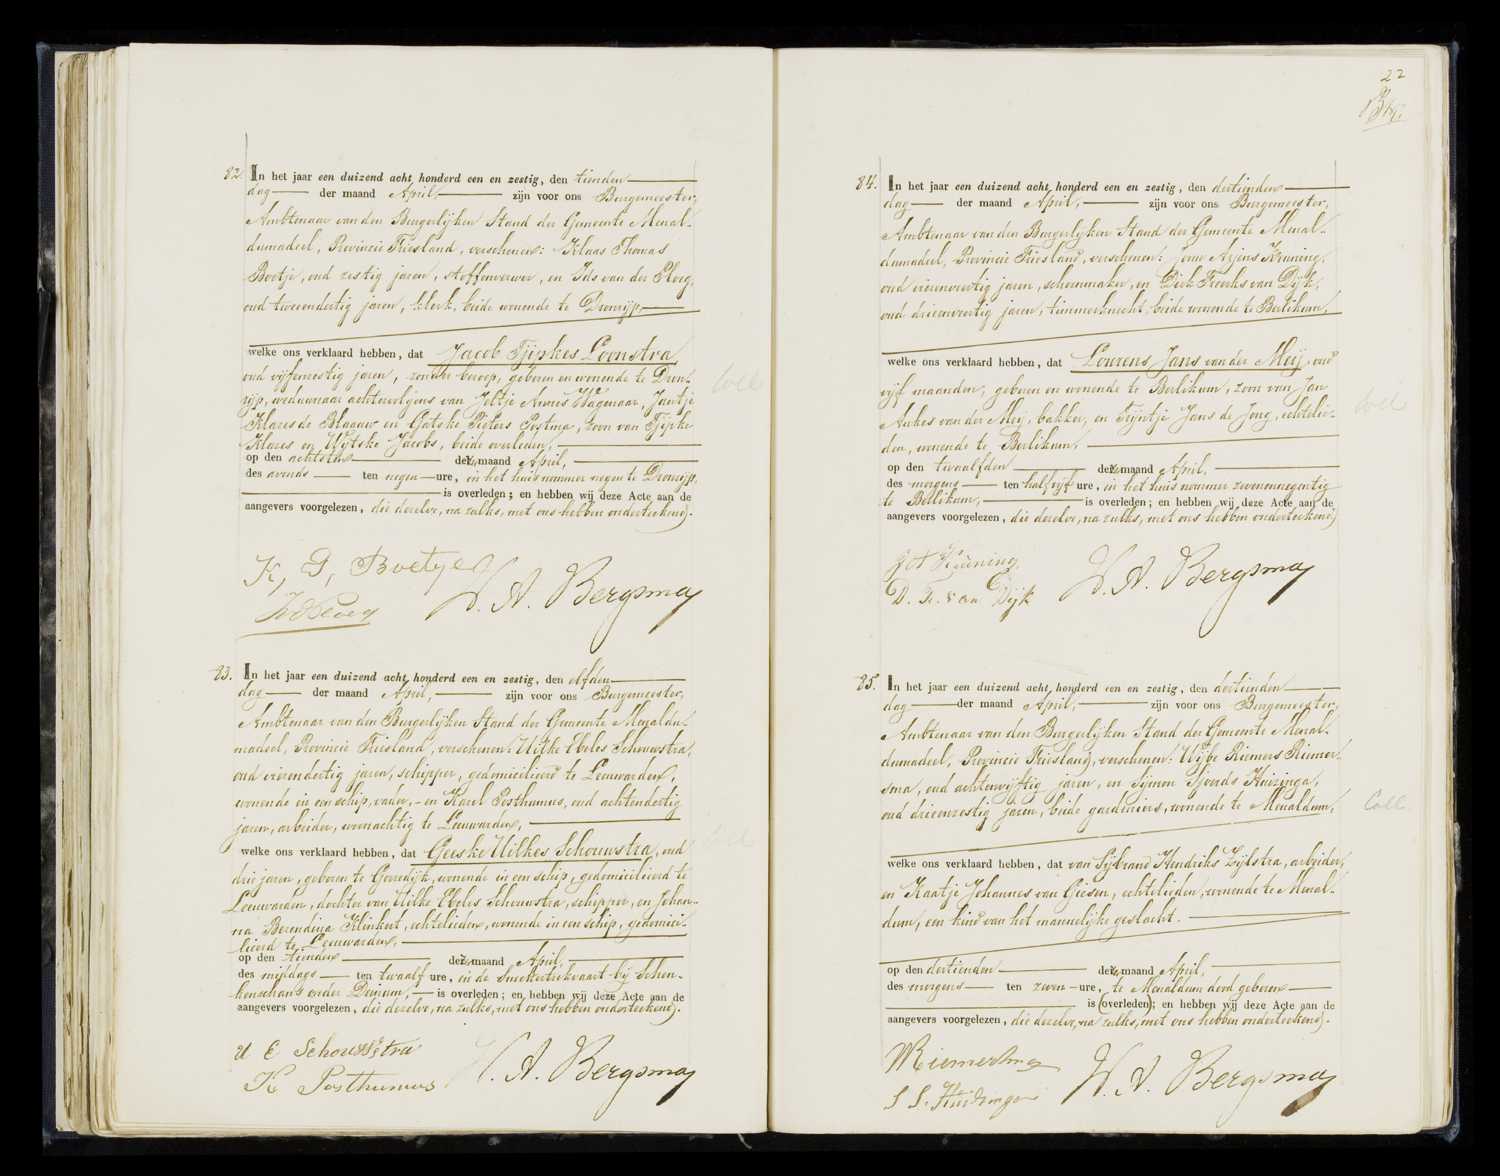 82. In het jaar een duizend acht honderd een en zestig, den tienden
dag der maand April, zijn voor ons Burgemeester,
Ambtenaar van den Burgerlijken Stand der Gemeente Menal-
dumadeel, Provincie Friesland, verschenen: Klaas Thomas
Boetje, oud zestig jaren, stoffenverwer, en Ids van der Ploeg,
oud tweeendertig jaren, klerk, beide wonende te Dronrijp,
welke ons verklaard hebben, dat Jacob Tjipkes Loonstra
oud vijfenzestig jaren, zonder beroep, geboren en wonende te Dron-
rijp, weduwnaar achtervolgens van Jeltje Annes Wagenaar, Jantje
Klazes de Blaauw en Gatske Pieters Postma, zoon van Tjipke
Klazes en Wytske Jacobs, beide overleden,
op den achtsten dezer maand April,
des avonds ten negen ure, in het huis nommer negen te Dronrijp,
is overleden; en hebben wij deze Acte aan de
aangevers voorgelezen, die dezelve, na zulks, met ons hebben onderteekend.
K, T, Boetje
W. A. Bergsma
83. In het jaar een duizend acht honderd een en zestig, den elfden
dag der maand April, zijn voor ons Burgemeester,
Ambtenaar van den Burgerlijken Stand der Gemeente Menaldu-
madeel, Provincie Friesland, verschenen: Uilke Ebeles Schouwstra,
oud vierendertig jaren, schipper, gedomicilieerd te Leeuwarden,
wonende in een schip, vader, en Karel Posthumus, oud achtendertig
jaren, arbeider, woonachtig te Leeuwarden,
welke ons verklaard hebben, dat Geeske Uilkes Schouwstra, oud
drie jaren, geboren te Gorredijk, wonende in een schip, gedomicilieerd te
Leeuwarden, dochter van Uilke Ebeles Schouwstra, schipper, en Johan-
na Berendina Klinkert, echtelieden, wonende in een schip, gedomici-
lieerd te Leeuwarden,
op den tienden dezer maand April,
des middags ten twaalf ure, in de Sneekertrekvaart bij Schen-
kenschans onder Deinum, is overleden; en hebben wij deze Acte aan de
aangevers voorgelezen, die dezelve, na zulks, met ons hebben onderteekend.
U E Schouwstra
K Posthumus
W. A. Bergsma
22
84. In het jaar een duizend acht honderd een en zestig, den dertienden
dag der maand April, zijn voor ons Burgemeester,
Ambtenaar van den Burgerlijken Stand der Gemeente Menal-
dumadeel, Provincie Friesland, verschenen: Arjens Kruning,
oud vierenveertig jaren, schoenmaker, en Dirk Feerks van Dijk,
oud drieenveertig jaren, timmerknecht, beide wonende te Berlikum,
welke ons verklaard hebben, dat Lourens Jans van der Meij, oud
vijf maanden, geboren en wonende te Berlikum, zoon van Jan
Ankes van der Meij, bakker, en Trijntje Jans de Jong, echtelie-
den, wonende te Berlikum,
op den twaalfden dezer maand April,
des morgens ten half vijf ure, in het huis nommer tweeennegentig
te Berlikum, is overleden; en hebben wij deze Acte aan de
aangevers voorgelezen, die dezelve, na zulks, met ons hebben onderteekend
Kruning
D. F. van Dijk
W. A. Bergsma
85. In het jaar een duizend acht honderd een en zestig, den dertienden
dag der maand April, zijn voor ons Burgemeester,
Ambtenaar van den Burgerlijken Stand der Gemeente Menal-
dumadeel, Provincie Friesland, verschenen: Wijbe Riemers Riemer-
sma, oud achtenvijftig jaren, en Sijmon Sjoerds Huizinga,
oud drieenzestig jaren, beide gardeniers, wonende te Menaldum,
welke ons verklaard hebben, dat van Sijbrand Hendriks Zijlstra, arbeider,
en Kaatje Johannes van Giesen, echtelieden, wonende te Menal-
dum, een kind van het mannelijke geslacht.
op den dertienden dezer maand April,
des morgens ten zeven ure, te Menaldum dood geboren
is (overleden); en hebben wij deze Acte aan de
aangevers voorgelezen, die dezelve, na zulks, met ons hebben onderteekend.
W Riemersma
S S. Huizinga
W. A. Bergsma
Coll